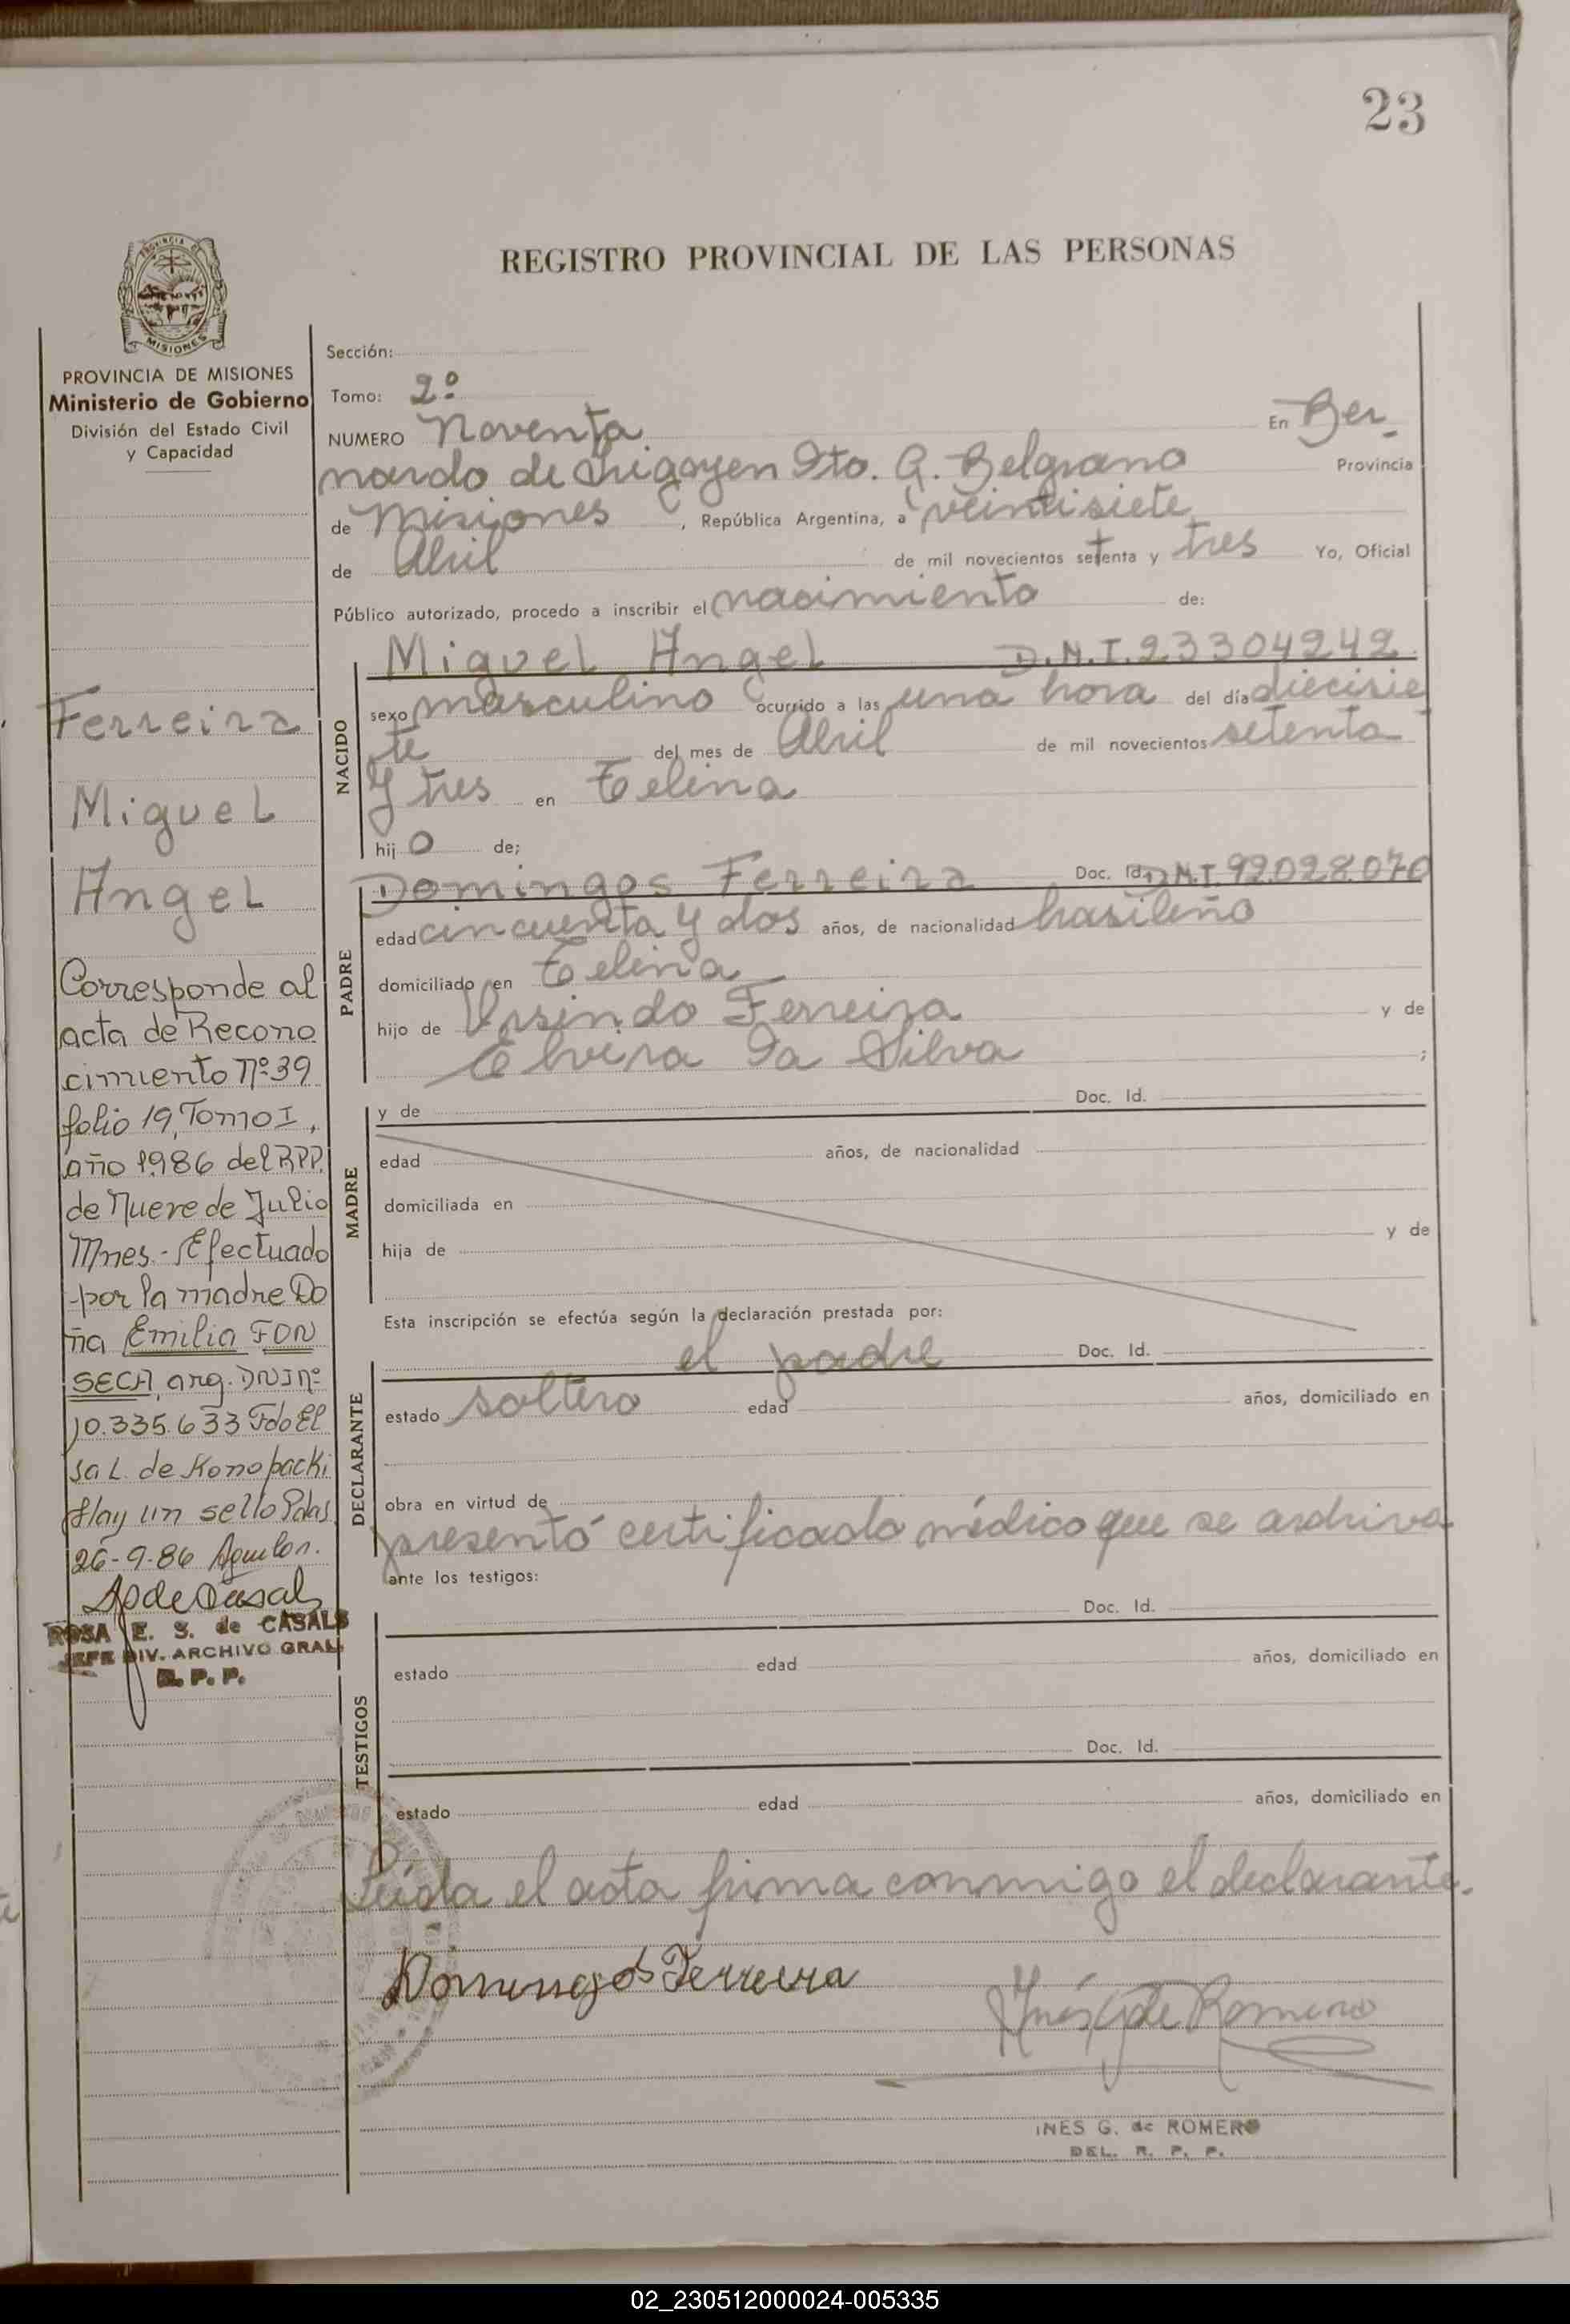 23
REGISTRO PROVINCIAL DE LAS PERSONAS
PROVINCIA DE
MISIONES
PROVINCIA DE MISIONES
Ministerio de Gobierno
División del Estado Civil
y Capacidad
Ferreira
Miguel
Angel
Corresponde al
acta de Recono
cimiento Nº 39
folio 19, Tomo I,
año 1986 del RPP.
de Nueve de Julio
Mnes.- Efectuado
por la madre Do
ña Emilia FON
SECA, arg. DNI nº
10.335.633 Fdo El
sa L. de Konopacki
Hay un sello Pdas
26-9-86
ROSA E. S. de CASALS
JEFE DIV. ARCHIVO GRAL.
R. P. P.
Sección:
Tomo: 2º
NUMERO Noventa En Ber-
nardo de Irigoyen Dto. G. Belgrano Provincia
de Misiones, República Argentina, a veintisiete
de Abril de mil novecientos setenta y tres Yo, Oficial
Público autorizado, procedo a inscribir el nacimiento de:
NACIDO
Miguel Angel D.N.I. 23304242
sexo masculino ocurrido a las una hora del día diecisie
te del mes de Abril de mil novecientos setenta
y tres en Celina
hijo de;
PADRE
Domingos Ferreira Doc. Id. D.N.I. 92.028.070
edad cincuenta y dos años, de nacionalidad brasileño
domiciliado en Celina
hijo de Ursindo Ferreira y de
Elvira Da Silva ;
MADRE
y de Doc. Id.
edad años, de nacionalidad
domiciliada en
hija de y de
Esta inscripción se efectúa según la declaración prestada por:
DECLARANTE
el padre Doc. Id.
estado soltero edad años, domiciliado en
obra en virtud de
presentó certificado médico que se archiva
ante los testigos:
TESTIGOS
Doc. Id.
estado edad años, domiciliado en
Doc. Id.
estado edad años, domiciliado en
Leída el acta firma conmigo el declarante.
Domingos Ferreira
Inés G de Romero
INES G. de ROMERO
DEL. R. P. P.
02_230512000024-005335